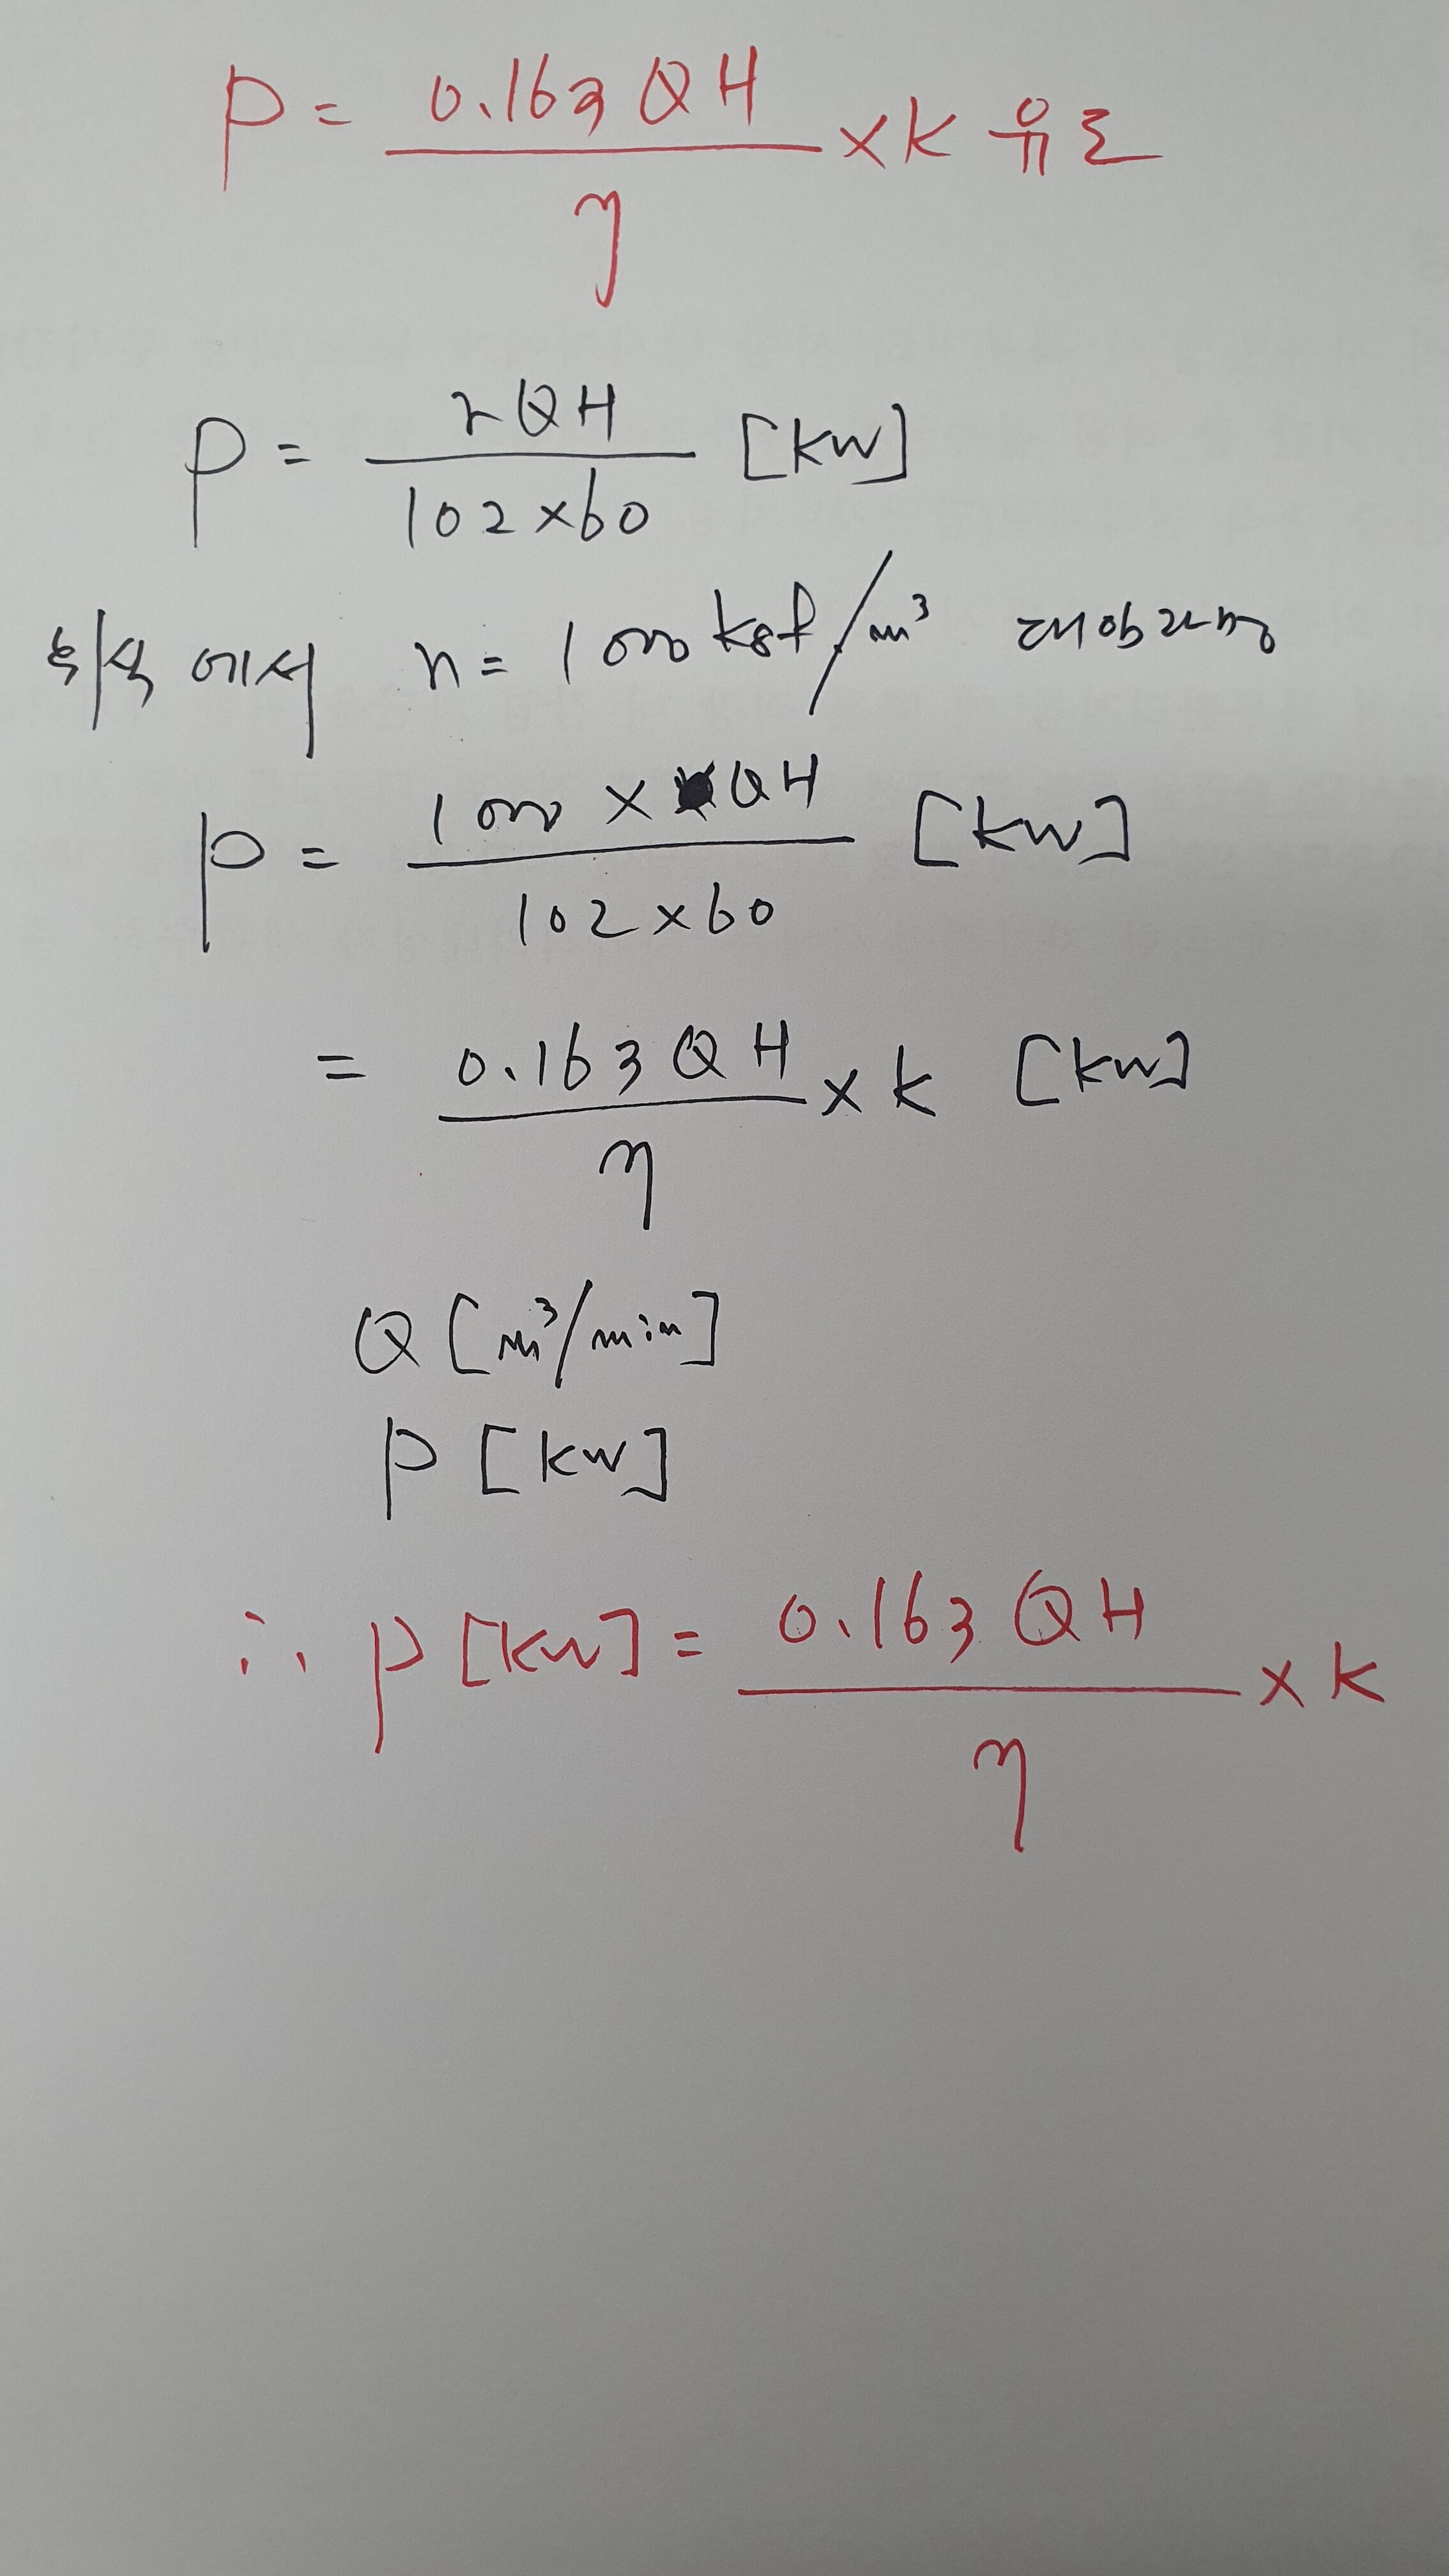 P = 0.163QH / η × K 유도
P = rQH / 102×60 [kW]
윗식에서 r = 1000 kgf/m³ 대입하면
P = 1000 × QH / 102×60 [kW]
= 0.163QH / η × K [kW]
Q [m³/min]
P [kW]
∴ P [kW] = 0.163QH / η × K